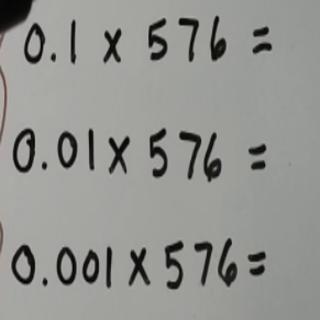 0.1 × 576 =
0.01 × 576 =
0.001 × 576 =